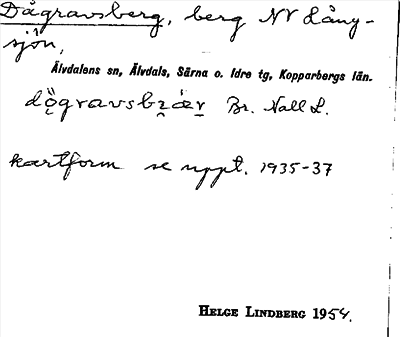 Dågravsberg, berg NV Lång-
sjön,
Älvdalens sn, Älvdals, Särna o. Idre tg, Kopparbergs län.
Br. Nall L.
kartform se uppt. 1935-37
HELGE LINDBERG 1954.